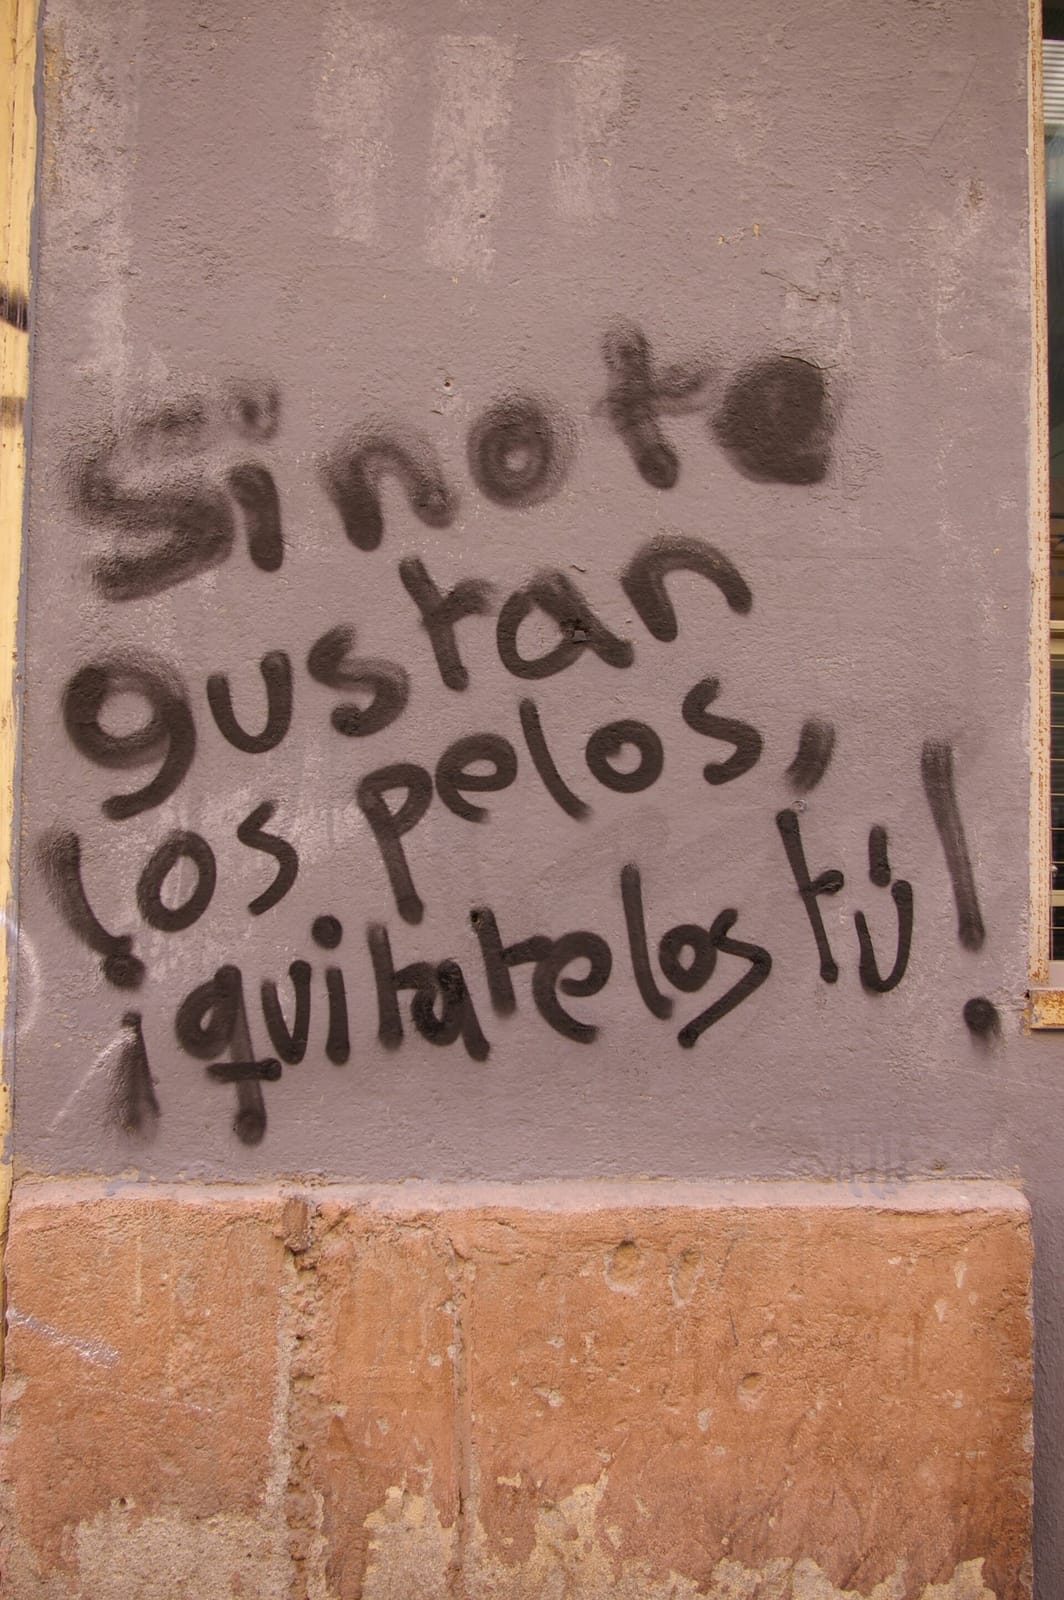 Si no te
gustan
los pelos,
¡quitatelos tú!